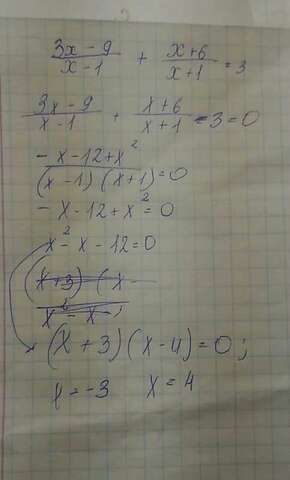 (3x - 9)/(x - 1) + (x + 6)/(x + 1) = 3
(3x - 9)/(x - 1) + (x + 6)/(x + 1) - 3 = 0
(- x - 12 + x²)/((x - 1)(x + 1)) = 0
- x - 12 + x² = 0
x² - x - 12 = 0
(x + 3) (x -
x² - x -
(x + 3) (x - 4) = 0;
x = -3 x = 4